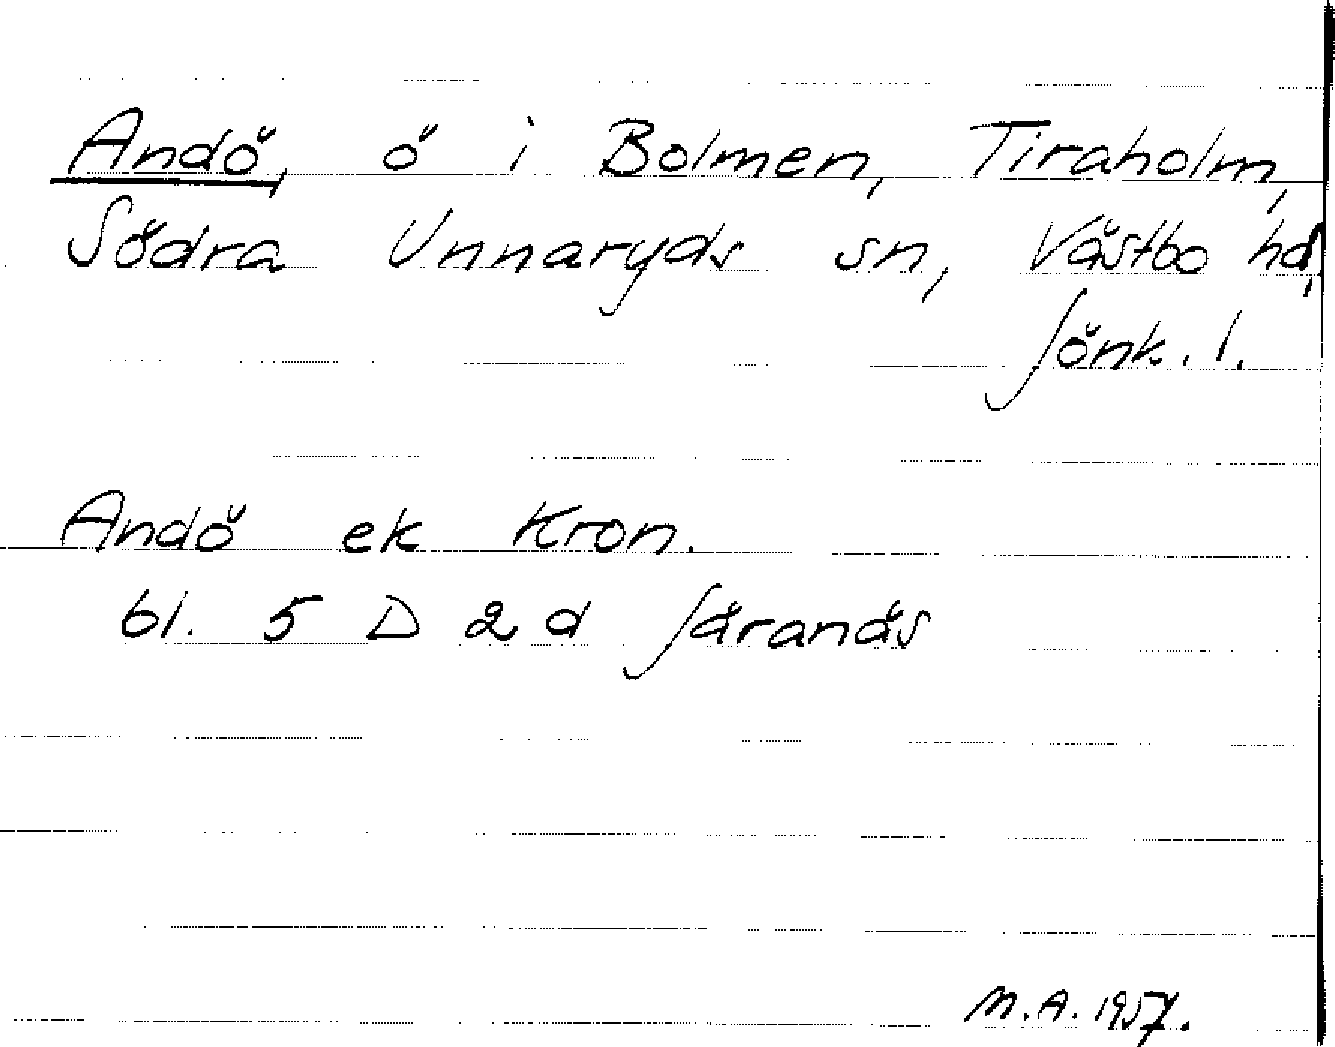 Andö, ö i Bolmen, Tiraholm,
Södra Unnaryds sn, Västbo hd,
Jönk. l.
Andö ek Kron.
bl. 5 D 2 d Järanäs
M.A. 1957.